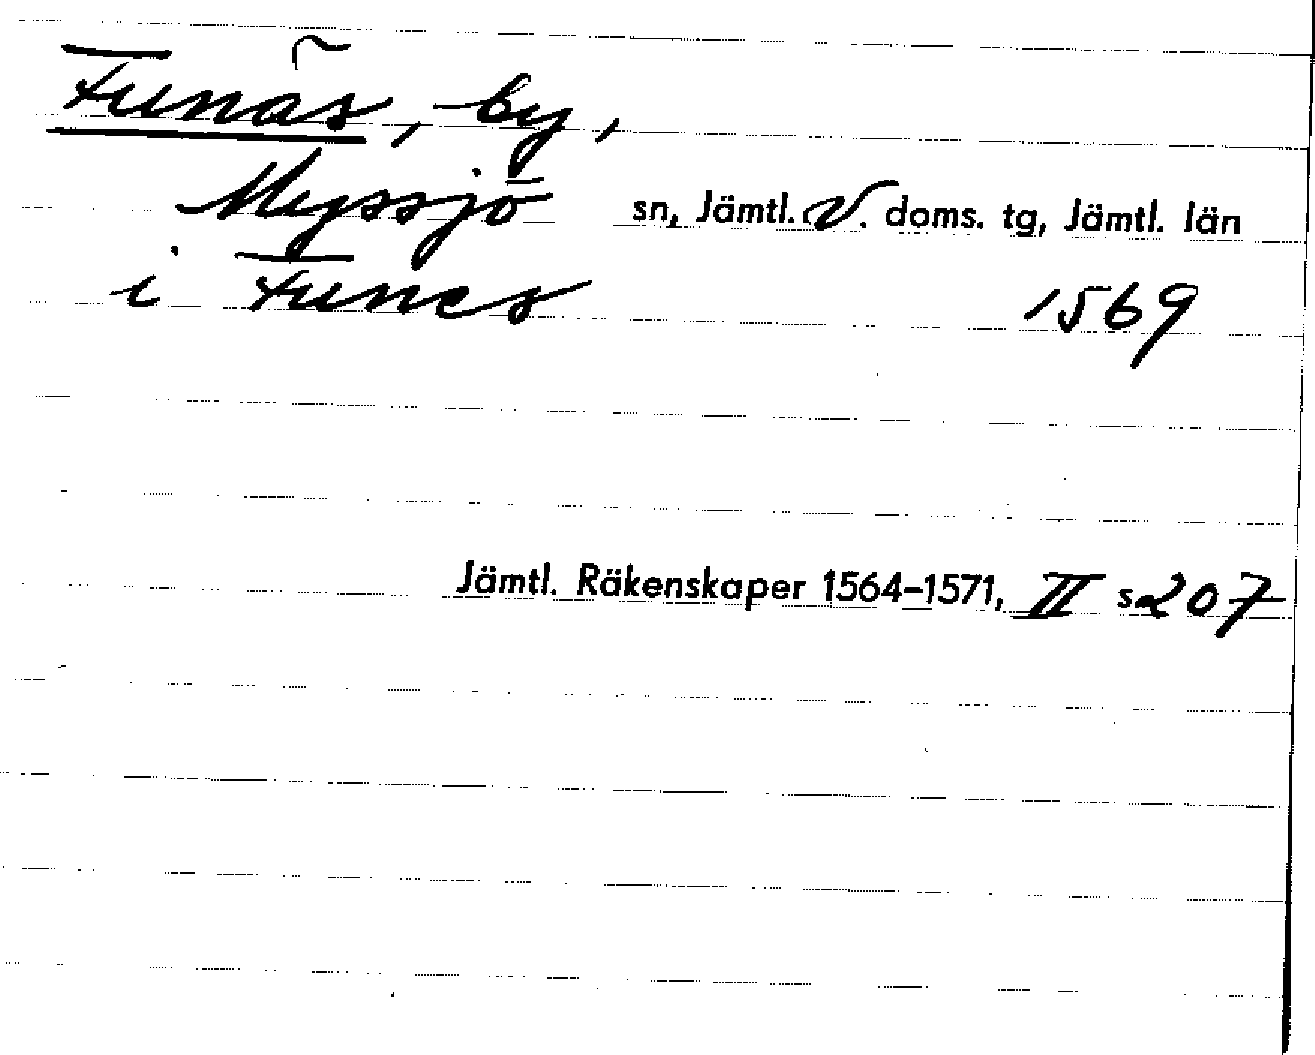 Funäs, by,
Myssjö sn, Jämtl. V. doms. tg, Jämtl. län
i Funes 1569
Jämtl. Räkenskaper 1564-1571, II s 207